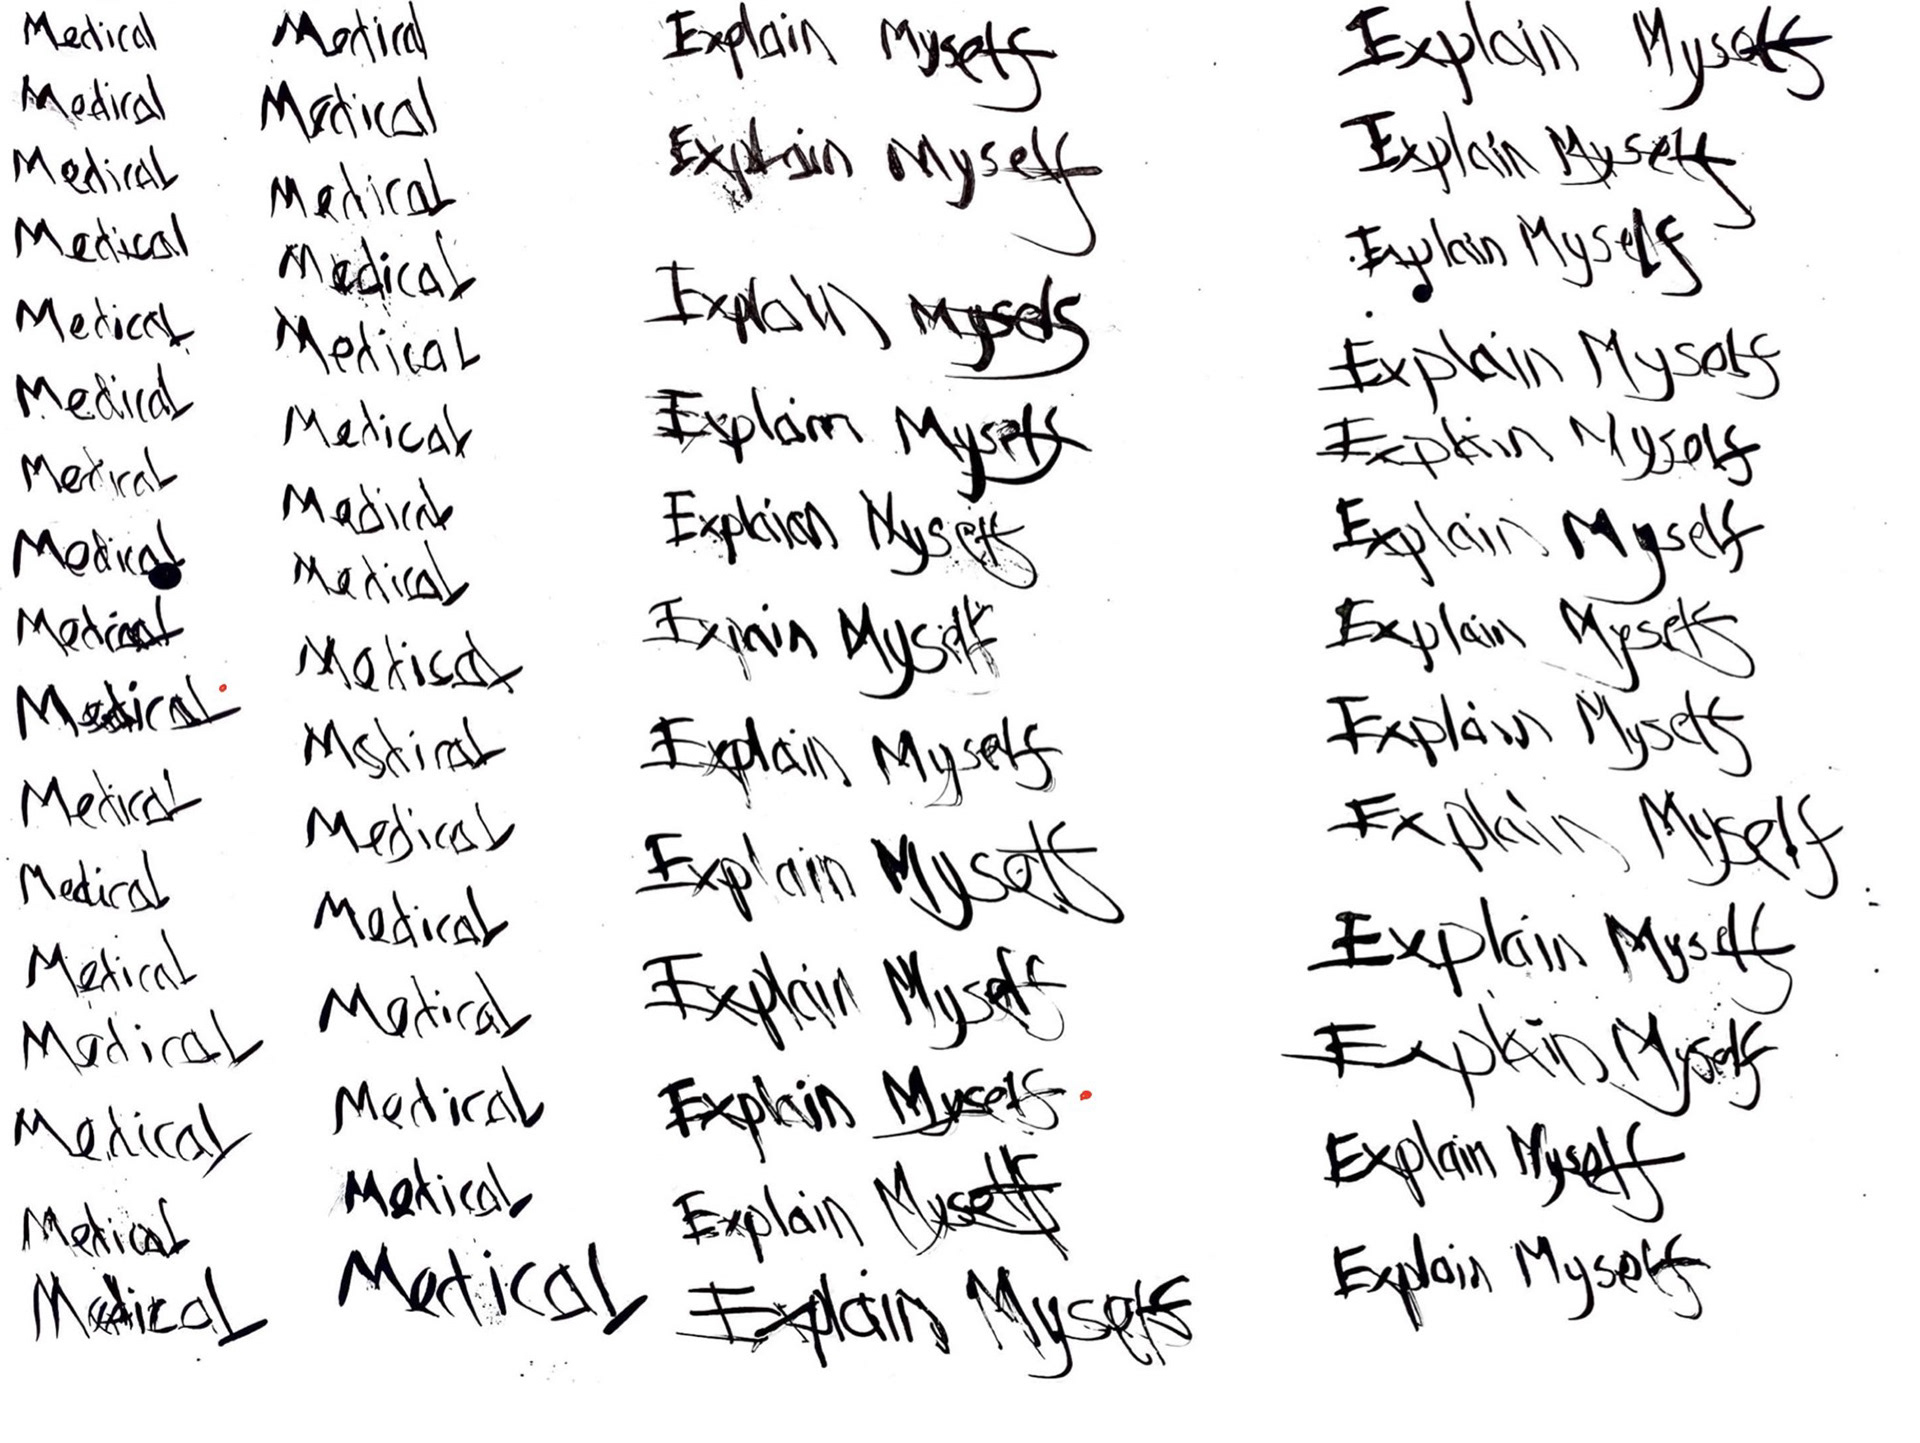 Medical
Medical
Medical
Medical
Medical
Medical
Medical
Medical
Medical
Medical
Medical
Medical
Medical
Medical
Medical
Medical
Medical
Medical
Medical
Medical
Medical
Medical
Medical
Medical
Medical
Medical
Medical
Medical
Medical
Medical
Medical
Medical
Medical
Explain Myself
Explain Myself
Explain Myself
Explain Myself
Explain Myself
Explain Myself
Explain Myself
Explain Myself
Explain Myself
Explain Myself
Explain Myself
Explain Myself
Explain Myself
Explain Myself
Explain Myself
Explain Myself
Explain Myself
Explain Myself
Explain Myself
Explain Myself
Explain Myself
Explain Myself
Explain Myself
Explain Myself
Explain Myself